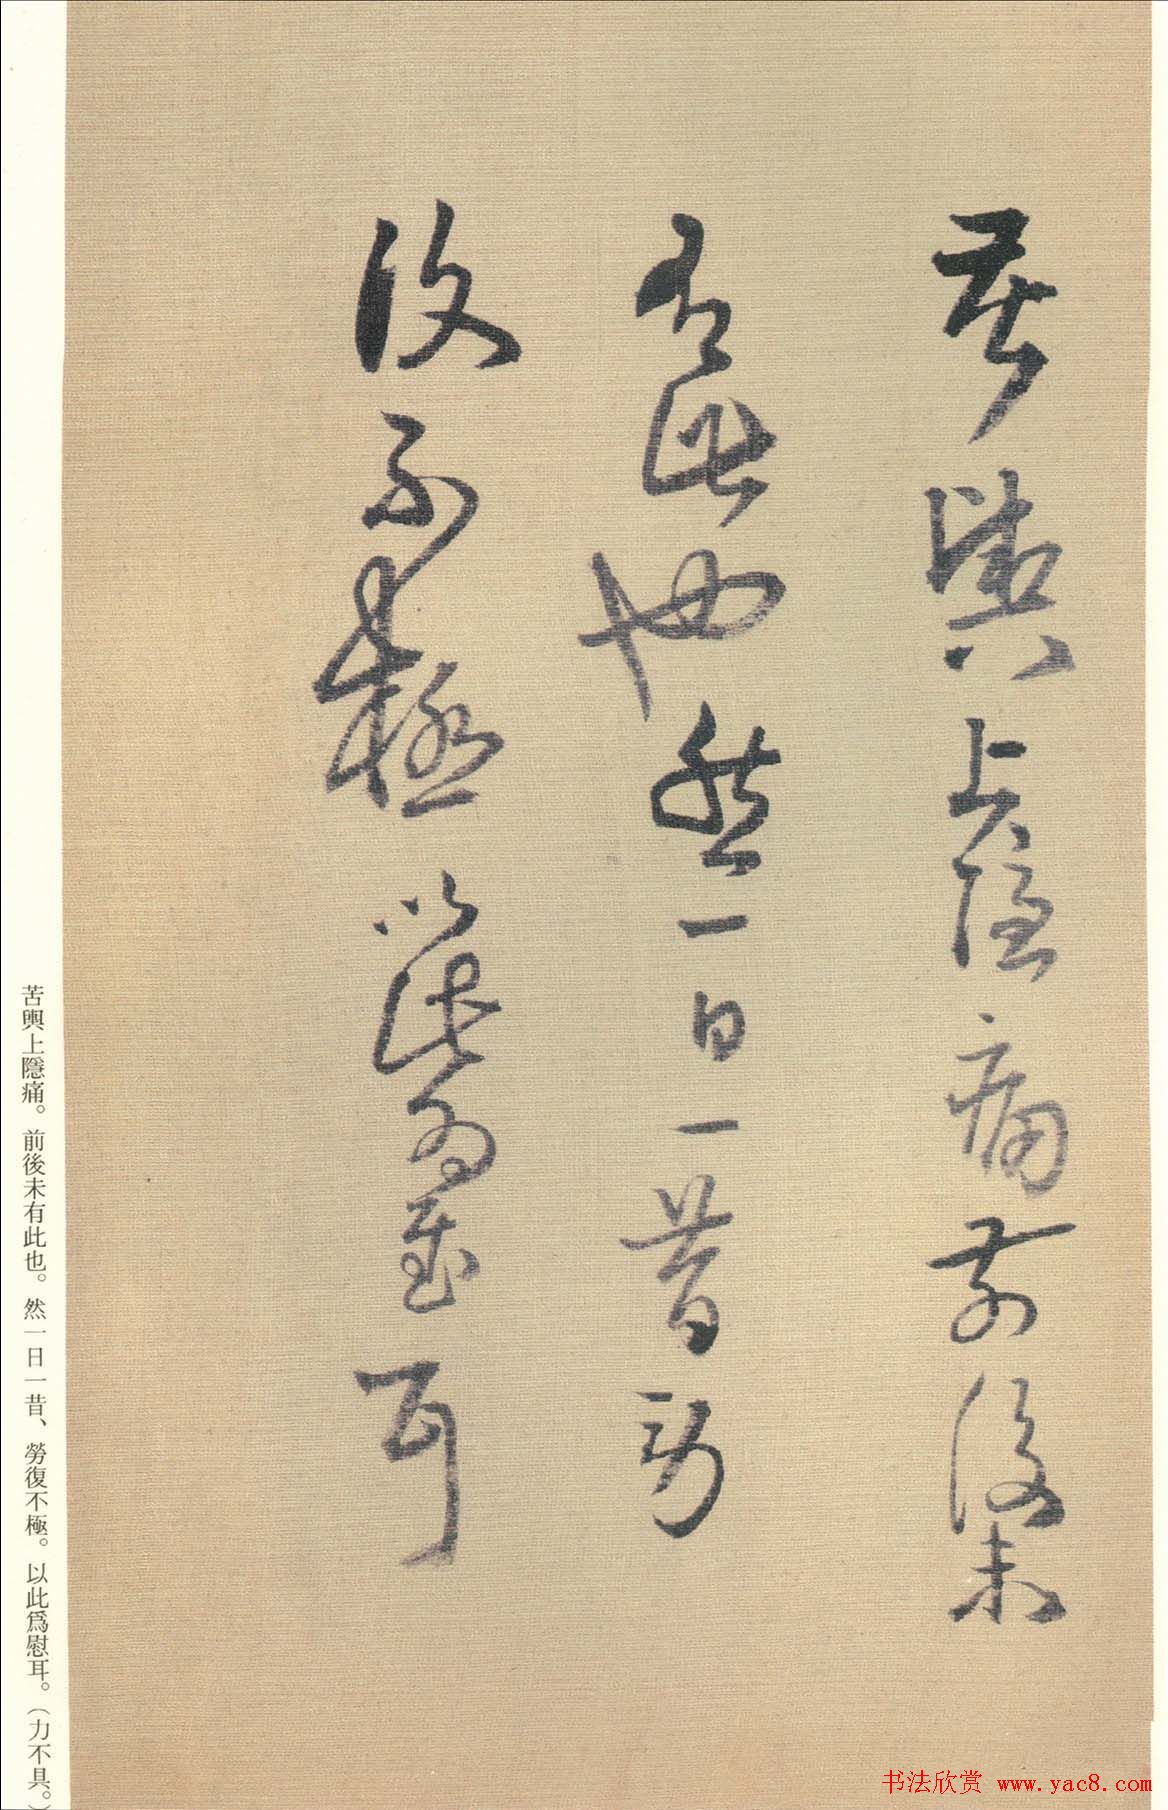 苦輿上隱痛前後未
有此也然一日一昔勞
復不極以此為慰耳
苦輿上隱痛。前後未有此也。然一日一昔、勞復不極。以此爲慰耳。（力不具。）
书法欣赏 www.yac8.com